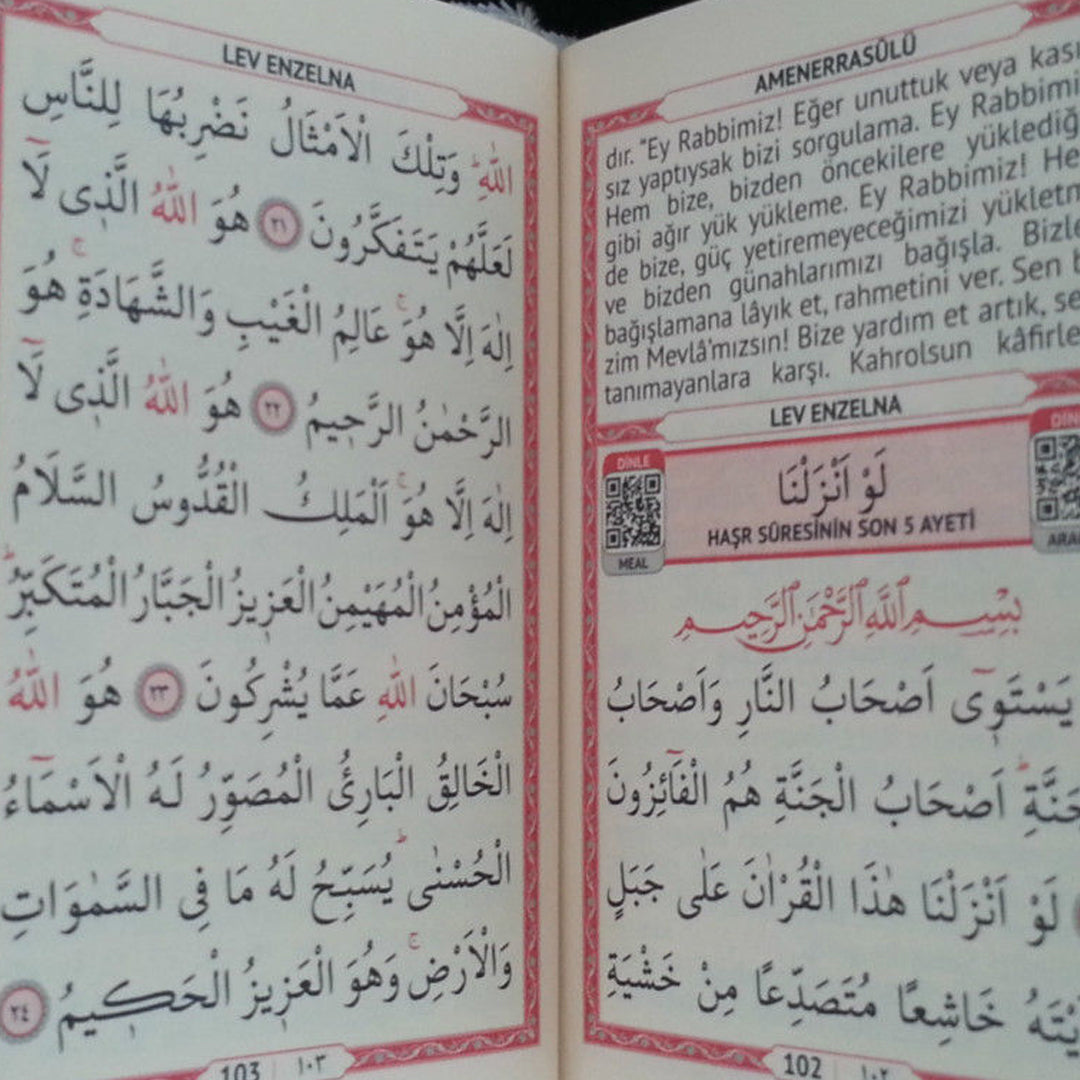 AMENERRASÛLÜ
dır. "Ey Rabbimiz! Eğer unuttuk veya kası
sız yaptıysak bizi sorgulama. Ey Rabbimi
Hem bize, bizden öncekilere yüklediğ
gibi ağır yük yükleme. Ey Rabbimiz! He
de bize, güç yetiremeyeceğimizi yükletm
ve bizden günahlarımızı bağışla. Bizle
bağışlamana lâyık et, rahmetini ver. Sen b
zim Mevlâ'mızsın! Bize yardım et artık, se
tanımayanlara karşı. Kahrolsun kâfirle
LEV ENZELNA
DİNLE
MEAL
لَوْ اَنْزَلْنَا
HAŞR SÛRESİNİN SON 5 AYETİ
DİN
ARA
بِسْمِ اللَّهِ الرَّحْمَٰنِ الرَّحِيمِ
يَسْتَوٖٓى اَصْحَابُ النَّارِ وَاَصْحَابُ
جَنَّةِؕ اَصْحَابُ الْجَنَّةِ هُمُ الْفَٓائِزُونَ
لَوْ اَنْزَلْنَا هٰذَا الْقُرْاٰنَ عَلٰى جَبَلٍ
يْتَهُ خَاشِعًا مُتَصَدِّعًا مِنْ خَشْيَةِ
102 ١٠٢
LEV ENZELNA
اللّٰهِؕ وَتِلْكَ الْاَمْثَالُ نَضْرِبُهَا لِلنَّاسِ
لَعَلَّهُمْ يَتَفَكَّرُونَ ٢١ هُوَ اللّٰهُ الَّذٖى لَٓا
اِلٰهَ اِلَّا هُوَۚ عَالِمُ الْغَيْبِ وَالشَّهَادَةِۚ هُوَ
الرَّحْمٰنُ الرَّحٖيمُ ٢٢ هُوَ اللّٰهُ الَّذٖى لَٓا
اِلٰهَ اِلَّا هُوَۚ اَلْمَلِكُ الْقُدُّوسُ السَّلَامُ
الْمُؤْمِنُ الْمُهَيْمِنُ الْعَزٖيزُ الْجَبَّارُ الْمُتَكَبِّرُؕ
سُبْحَانَ اللّٰهِ عَمَّا يُشْرِكُونَ ٢٣ هُوَ اللّٰهُ
الْخَالِقُ الْبَارِئُ الْمُصَوِّرُ لَهُ الْاَسْمَٓاءُ
الْحُسْنٰىؕ يُسَبِّحُ لَهُ مَا فِى السَّمٰوَاتِ
وَالْاَرْضِۚ وَهُوَ الْعَزٖيزُ الْحَكٖيمُ ٢٤
103 ١٠٣